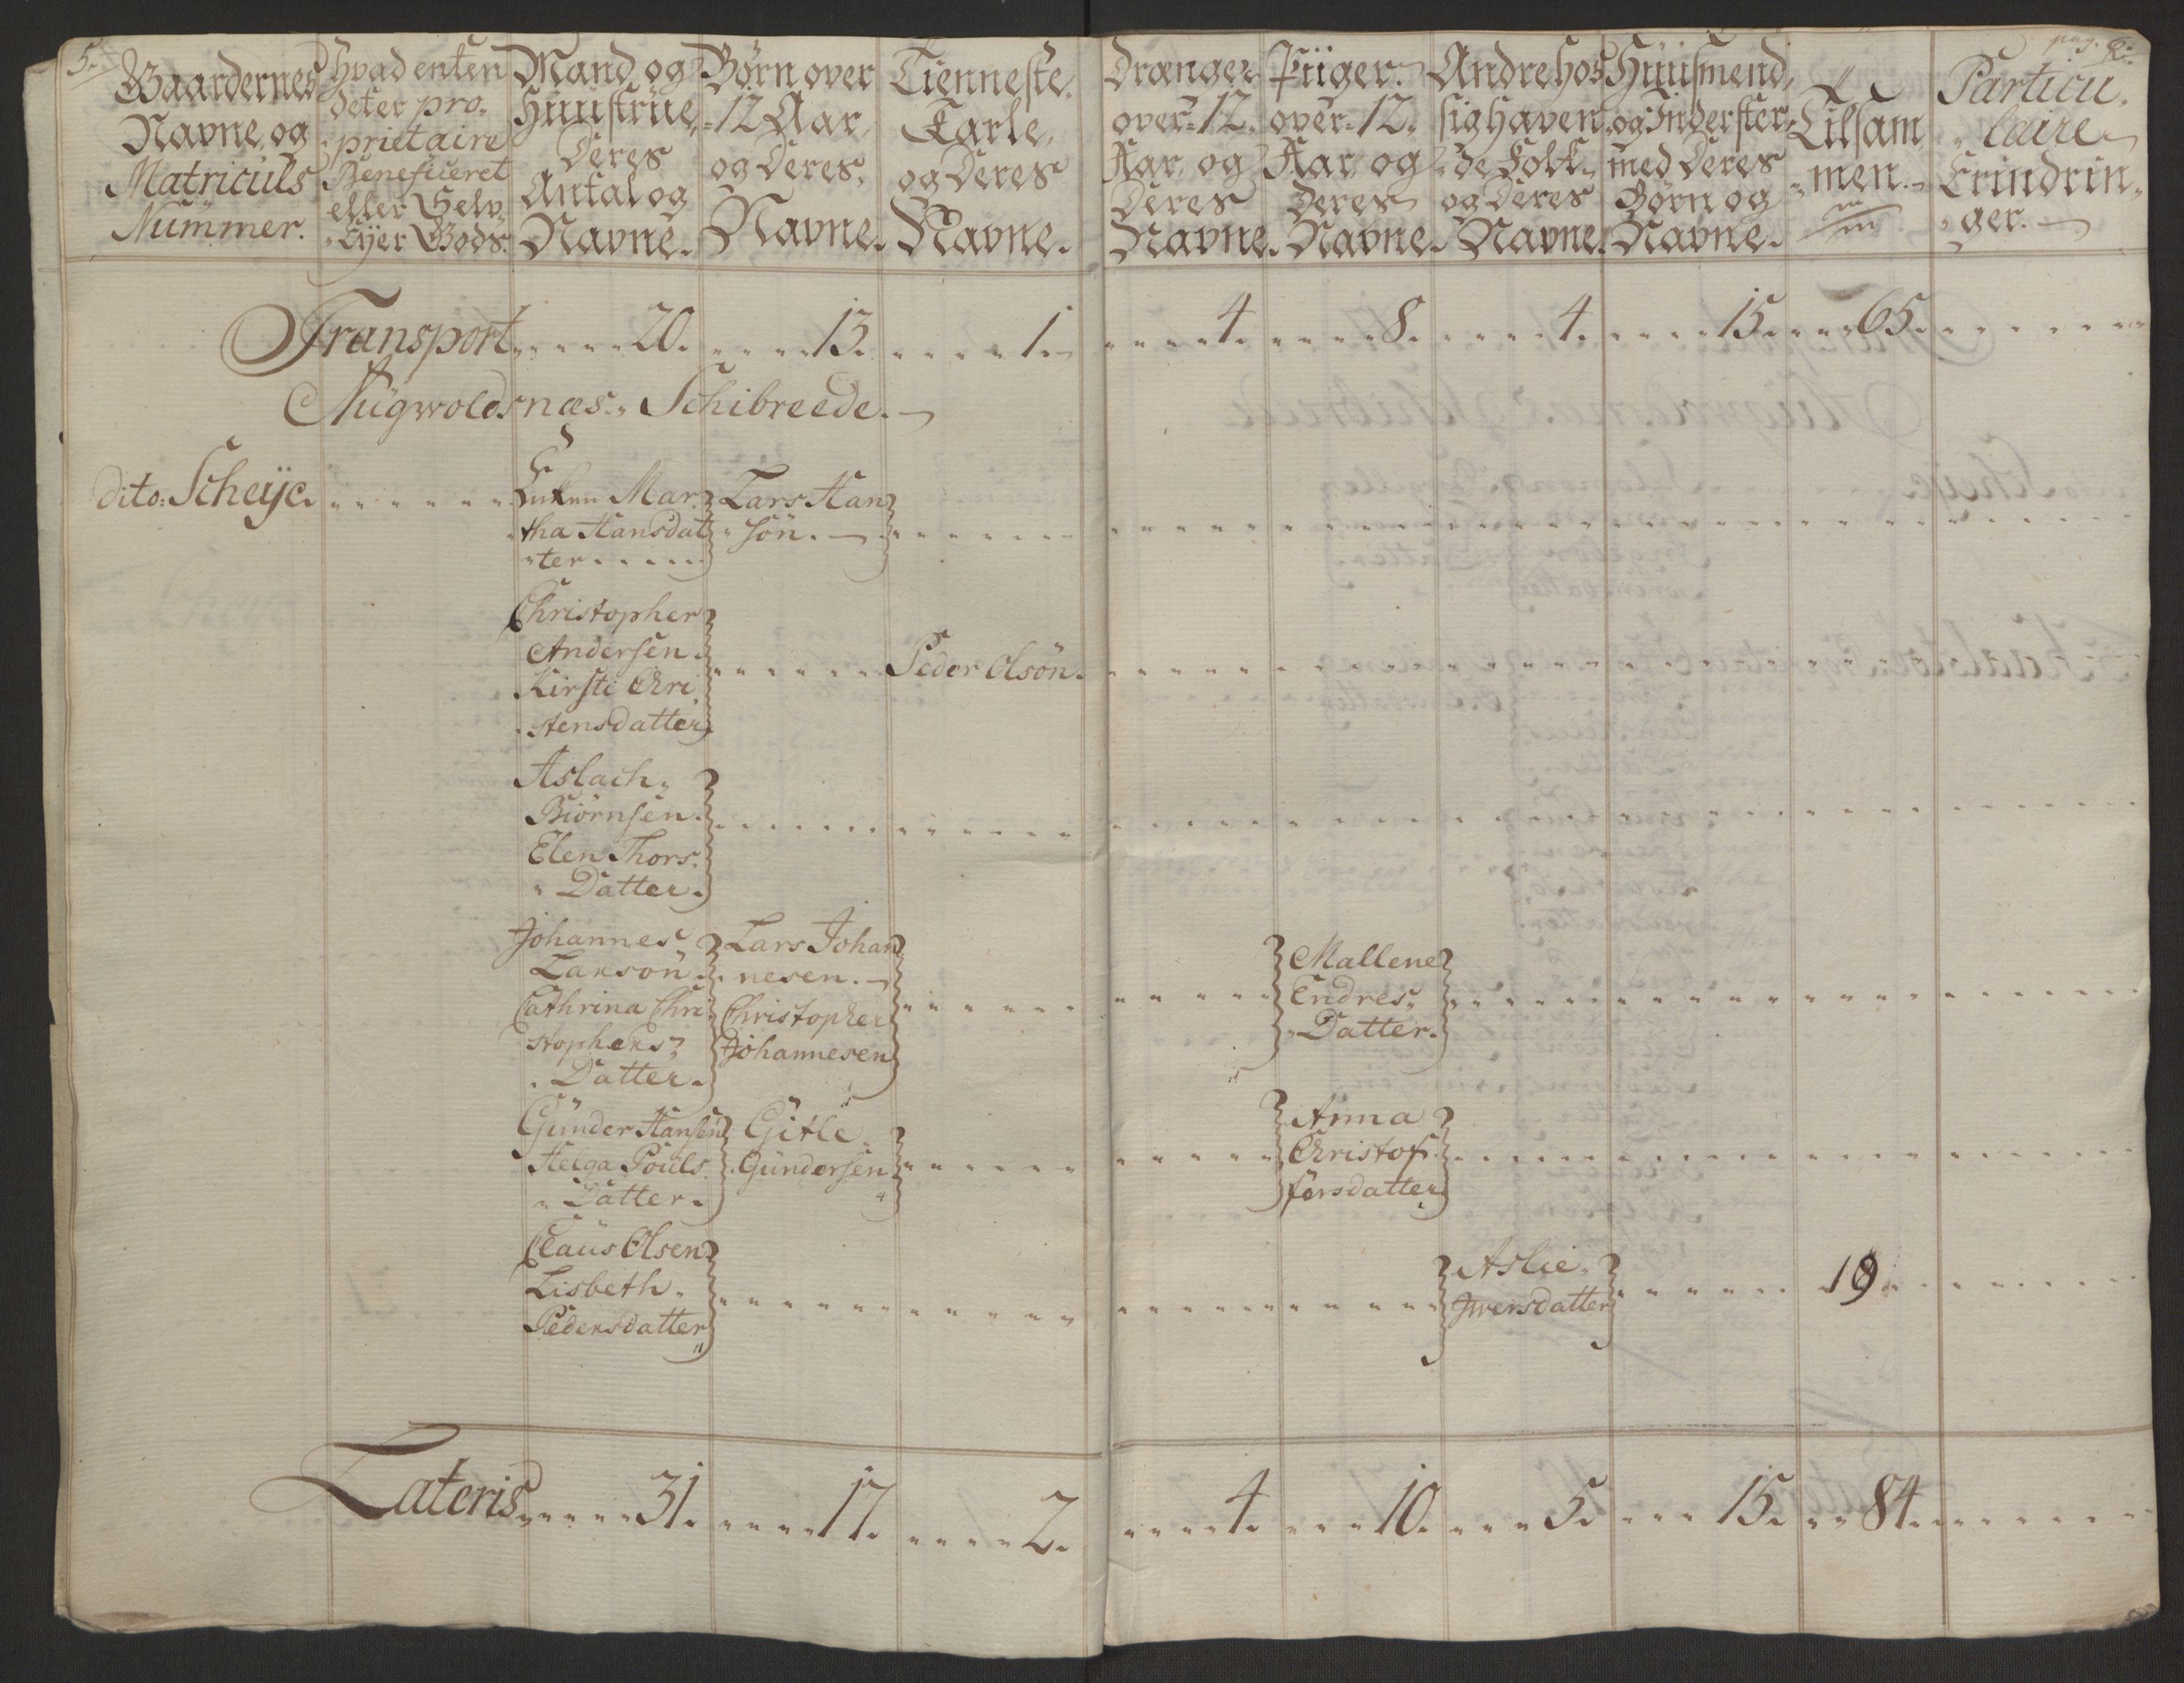 5.
pag. 6:
Gaardernes Navne, og Matriculs Nummer.
Hvad enten det er pro-prietaire Beneficeret eller Selv-Eÿer Gods.
Mand og Huustrüe, Deres Antal og Navne.
Børn over 12 Aar, og Deres Navne.
Tienneste Karle, og Deres Navne.
Drænge over 12 Aar, og Deres Navne.
Piiger over 12 Aar, og Deres Navne.
Andre hos sig haven-de Folk og Deres Navne.
Huusmend, og Inderster, med Deres Børn og Navne.
Tilsam-men.
Particu-laire Erindrin-ger.
Transport 20. 13. 1. 4. 8. 4. 15. 65.
Augwolds næs Schibreede.
dito: Scheÿe.
Enken Mar-
tha Hansdat
ter
Lars Han
sön.
Christopher
Andersen.
Kirsti Chri
stensdatter
Peder Olsön.
Aslach
Biörnsen.
Elen Thors.
Datter.
Johannes
Larsön
Cathrina Chri
stophers
Datter.
Lars Johan
nesen.
Christopher
Johannesen
Mallene
Endres
Datter.
Günder Hansen
Helga Pouls
Datter.
Gitle
Gündersen
Anna
Christof
fersdatter
Claus Olsen
Lisbeth
Pedersdatter
Aslie
Iwersdatter
19
Lateris 31. 17. 2. 4. 10. 5. 15. 84.